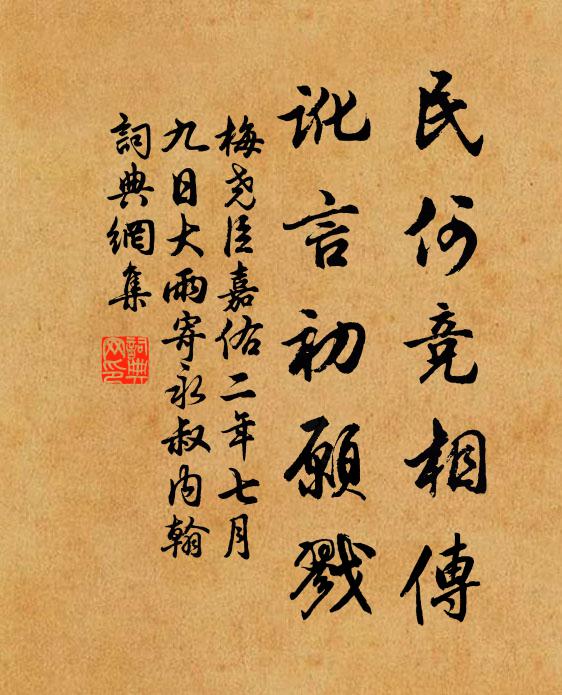 民何竞相傳
訛言初願戮
梅尧臣嘉佑二年七月
九日大雨寄永叔内翰
詞典網集
詞典
网印